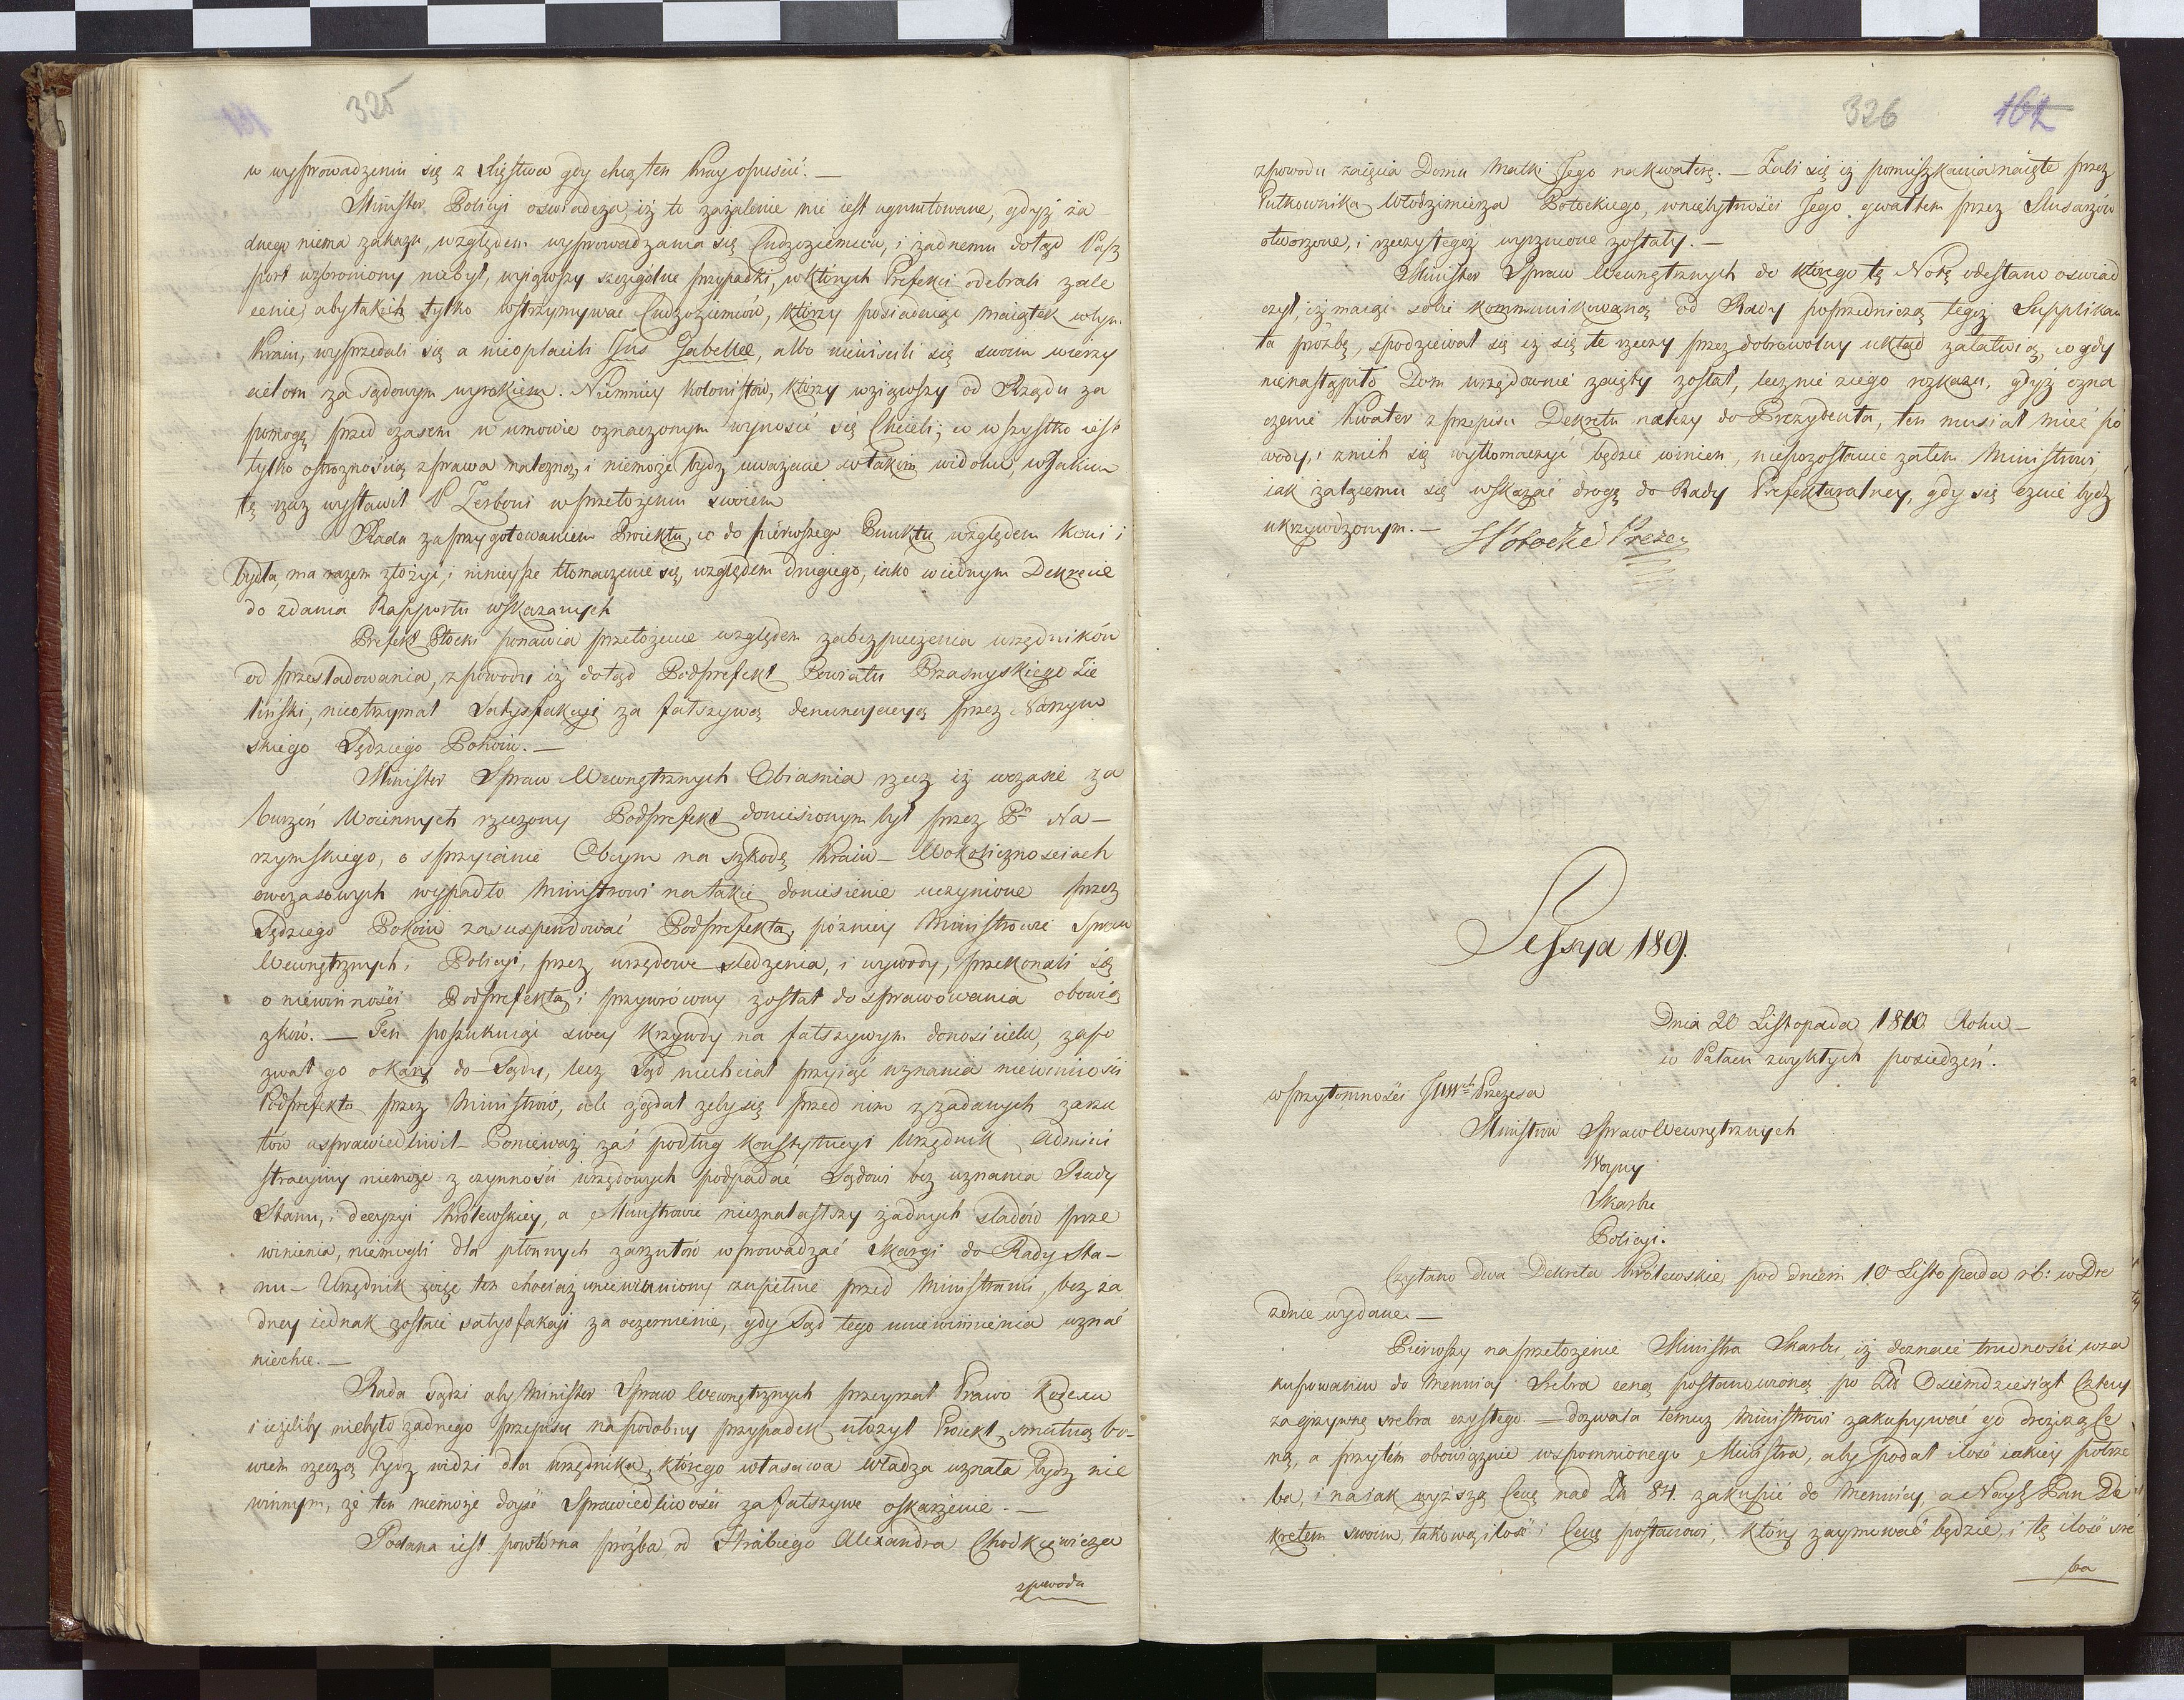 325
w wyprowadzeniu się z Xięstwa gdy chcą ten Kray opuścić. —
Minister Policyi oswiadcza, iż to zażalenie nie iest ugruntowane, gdyż ża
dnego niema zakazu, względem wyprowadzania się Cudzoziemców, i żadnemu dotąd Pasz
port wzbroniony niebył, wyiąwszy szczególne przypadki, w których Prefekci odebrali zale
cenie, aby takich tylko wstrzymywać Cudzoziemców, którzy posiadaiąc maiątek w tym
Kraiu, wyprzedali się a nieopłacili Jus Gabellae, albo nieiścili się swoim wierzy
cielom za sądowym wyrokiem. Niemniey Kolonistów, którzy wziąwszy od Rządu za
pomogę, przed czasem w umowie oznaczonym wynosić się chcieli; co wszystko iest
tylko ostrożnością z prawa należną, i niemoże bydź uważane w takim widoku, w jakim
tę rzecz wystawił P. Zerboni w przełożeniu swoiem
Rada za przygotowaniem Proiektu, co do pierwszego Punktu względem koni i
bydła, ma razem złożyć, i ninieysze tłomaczenie się, względem drugiego, iako w iednym Dekrecie
do zdania Rapportu wskazanych
Prefekt Płocki ponawia przełożenie względem zabezpieczenia urzędników
od prześladowania, z powodu iż dotąd Podprefekt Powiatu Przasnyskiego Zie
liński, nieotrzymał Satysfakcyi za fałszywą denuncyacyą przez Narzym
skiego Sędziego Pokoiu. —
Minister Spraw Wewnętrznych Obiaśnia rzecz iż w czasie za
burzeń Woiennych rzeczony Podprefekt doniesionym był przez Pa Na-
rzymskiego, o sprzyianie Obcym na szkodę Kraiu — W okolicznościach
owczasowych wypadło Ministrowi na takie doniesienie uczynione przez
Sędziego Pokoiu zasuspendować Podprefekta, później Ministrowie Spraw
Wewnętrznych i Policyi, przez urzędowe sledzenia, i wywody, przekonali się
o niewinności Podprefekta, i przywrócony został do sprawowania obowią
zków. — Ten poszukuiąc swey krzywdy na fałszywym donosicielu, zapo
zwał go o karę do Sądu, lecz Sąd niechciał przyiąć uznania niewinności
Podprefekta przez Ministrów, ale żądał żeby się przed nim z zadanych zarzu
tów usprawiedliwił — Ponieważ zaś podług konstytucyi Urzędnik Admini
stracyiny niemoże z czynności urzędowych podpadać Sądowi bez uznania Rady
Stanu, i decyzyi Królewskiey, a Ministrowie nieznalazłszy żadnych śladów prze
winienia, niemogli dla płonnych zarzutów wprowadzać Skargi do Rady Sta-
nu — Urzędnik więc ten chociaż uniewinniony zupełnie przed Ministrami, bez ża
dney iednak zostaie satysfakcyi za oczernienie, gdy Sąd tego uniewinnienia uznać
niechce. —
Rada sądzi aby Minister Spraw Wewnętrznych przeyrzał Prawo Kodexu
i ieżeliby niebyło żadnego przepisu na podobny przypadek ułożył Proiekt, smutną bo-
wiem rzeczą bydź widzi dla Urzędnika, którego własciwa władza uznała bydź nie
winnym, że ten niemoże doyść Sprawiedliwości za fałszywe oskarżenie. —
Podana iest powtórna prożba od Hrabiego Alexandra Chodkiewicza
z powodu
326
162
z powodu zaięcia Domu Matki Jego na kwaterę. — Żali się iż pomieszkania naięte przez
Pułkownika Włodzimierza Potockiego, w niebytności Jego gwałtem przez Slusarzów
otworzone, i rzeczy tegoż wyrzucone zostały. —
Minister Spraw Wewnętrznych do którego tę Notę odesłano oswiad
czył, iż maiąc sobie kommunikowaną od Rady poprzedniczą tegoż Supplikan
ta prożbę, spodziewał się iż się te rzeczy przez dobrowolny układ załatwią, co gdy
nienastąpiło Dom urzędownie zaięty został, lecz nie z iego rozkazu, gdyż ozna
czenie Kwater z przepisu Dekretu należy do Prezydenta, ten musiał mieć po
wody, i z nich się wytłomaczyć będzie winien, niepozostanie zatem Ministrowi,
iak żalącemu się wskazać drogę do Rady Prefekturalney, gdy się czuie bydź
ukrzywdzonym. —
SPotocki Prezes
Sessya 189.
Dnia 20 Listopada 1810 Roku —
w Pałacu zwykłych posiedzeń.
w przytomności JWWch Prezesa
Ministrów Spraw Wewnętrznych
Woyny
Skarbu
Policyi.
Czytano dwa Dekreta Królewskie, pod dniem 10 Listopada rb: w Dre
znie wydane. —
Pierwszy na przełożenie Ministra Skarbu, iż doznaie trudności w za
kupowaniu do Mennicy Srebra ceną postanowioną po Zł Osiemdziesiąt Cztery
za grzywnę srebra czystego. — dozwala temuż Ministrowi zakupywać go droższą Ce
ną, a przytem obowiązuie wspomnionego Ministra, aby podał ilość iakiey potrze
ba, i na iak wyższą Cenę nad Zł 84. zakupić do Mennicy, a Nayś Pan De
kretem swoim, takową ilość i Cenę postanowi, który zaymować będzie, i tę ilość sre
bra